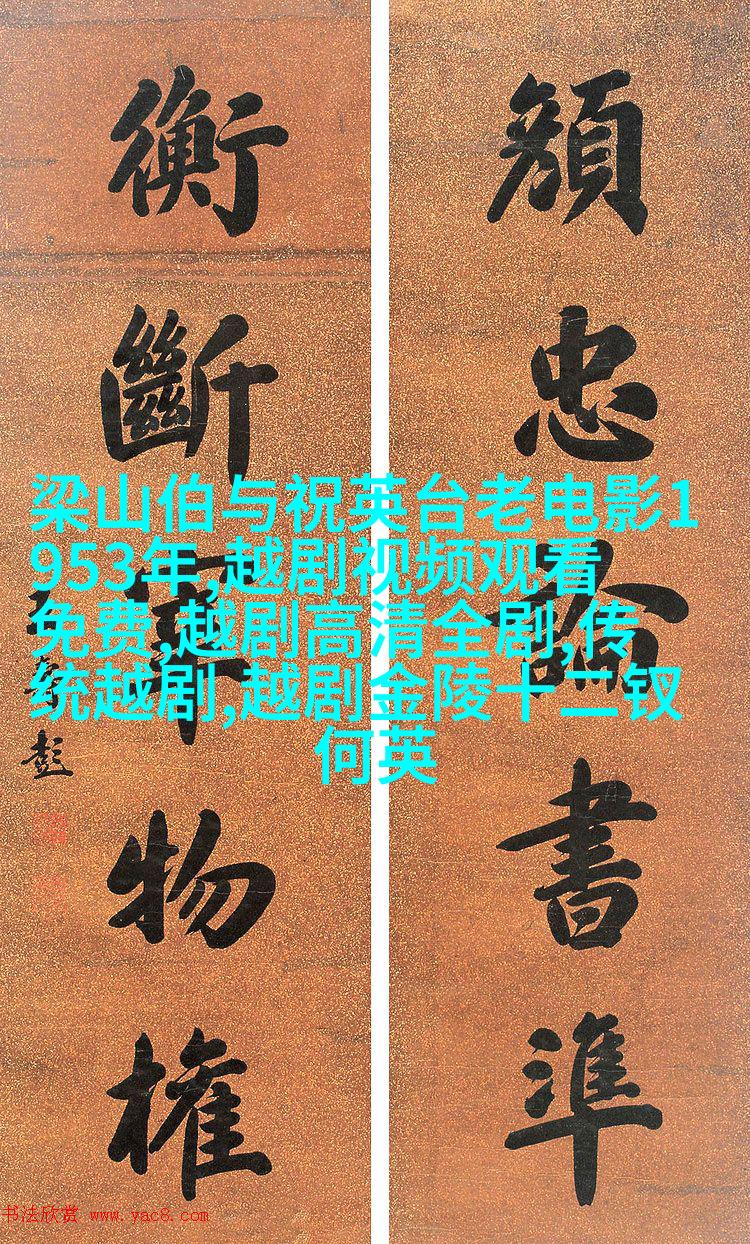 忠論書準
衡斷物權
彭
梁山伯与祝英台老电影1
953年,越剧视频观看
免费,越剧高清全剧,传
统越剧,越剧金陵十二钗
何英
书法欣赏 www.yac8.com